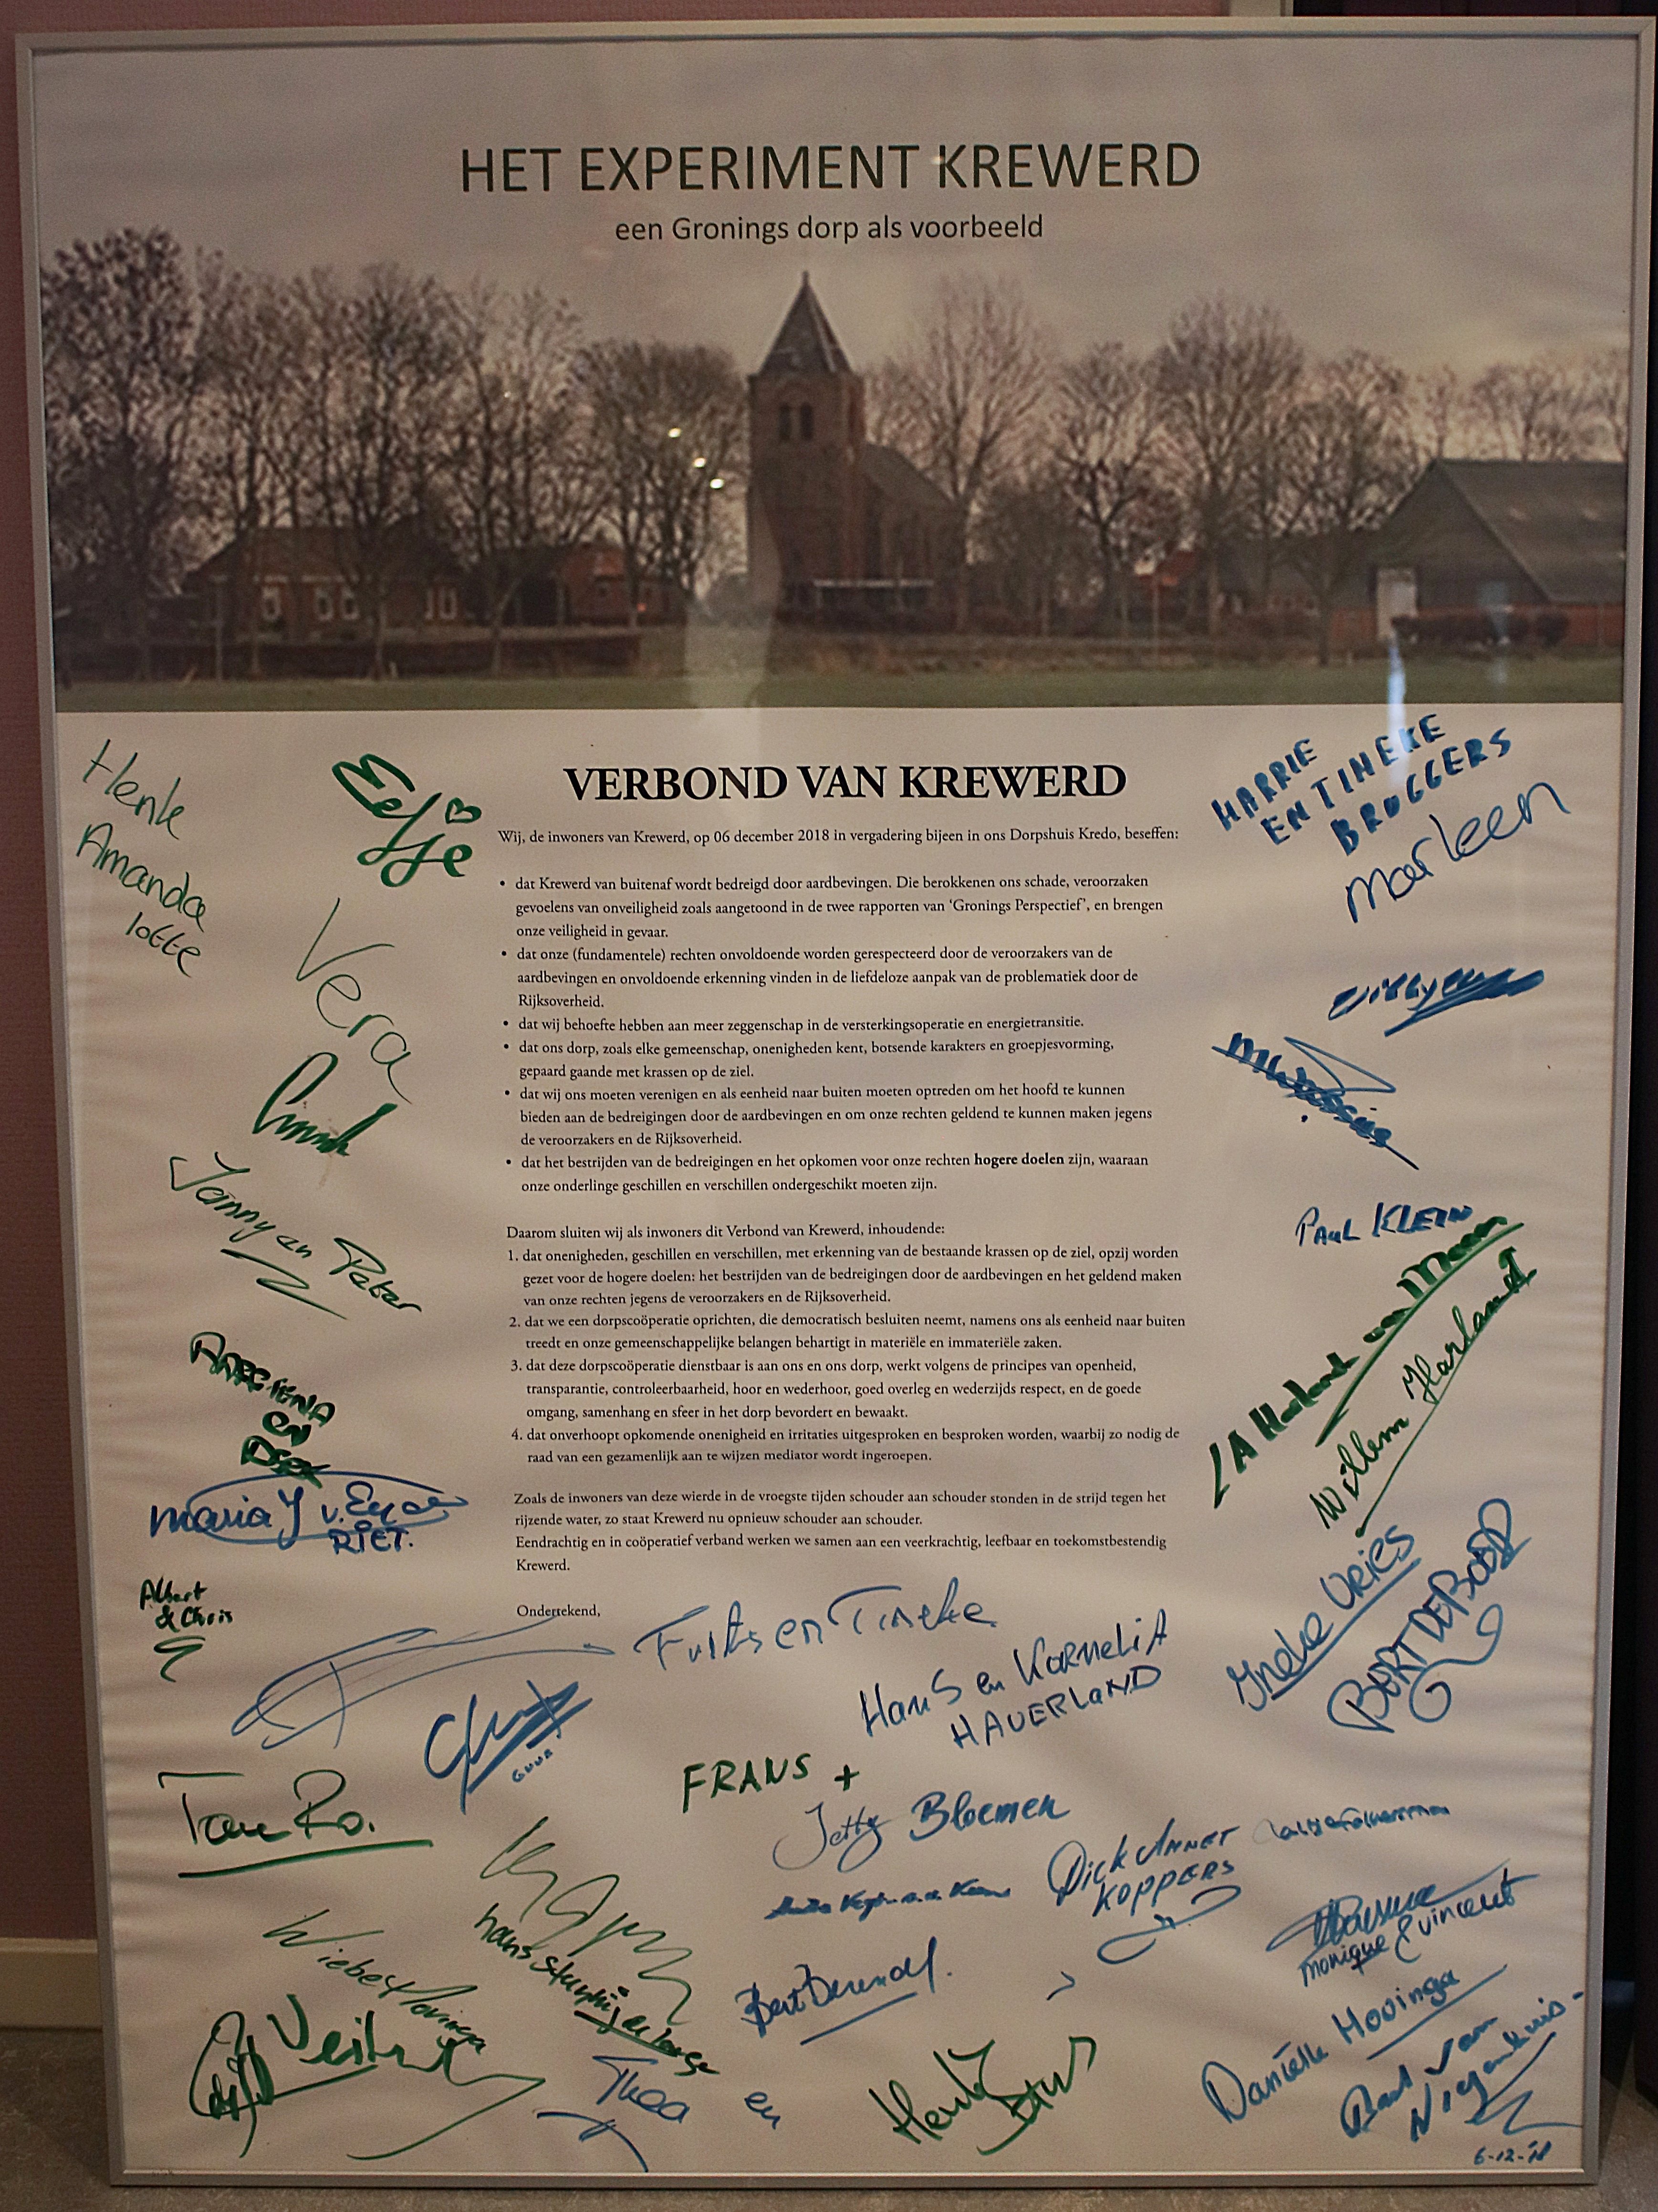 HET EXPERIMENT KREWERD
een Gronings dorp als voorbeeld
VERBOND VAN KREWERD
Wij, de inwoners van Krewerd, op 06 december 2018 in vergadering bijeen in ons Dorpshuis Kredo, beseffen:
• dat Krewerd van buitenaf wordt bedreigd door aardbevingen. Die berokkenen ons schade, veroorzaken
gevoelens van onveiligheid zoals aangetoond in de twee rapporten van ‘Gronings Perspectief’, en brengen
onze veiligheid in gevaar.
• dat onze (fundamentele) rechten onvoldoende worden gerespecteerd door de veroorzakers van de
aardbevingen en onvoldoende erkenning vinden in de liefdeloze aanpak van de problematiek door de
Rijksoverheid.
• dat wij behoefte hebben aan meer zeggenschap in de versterkingsoperatie en energietransitie.
• dat ons dorp, zoals elke gemeenschap, onenigheden kent, botsende karakters en groepjesvorming,
gepaard gaande met krassen op de ziel.
• dat wij ons moeten verenigen en als eenheid naar buiten moeten optreden om het hoofd te kunnen
bieden aan de bedreigingen door de aardbevingen en om onze rechten geldend te kunnen maken jegens
de veroorzakers en de Rijksoverheid.
• dat het bestrijden van de bedreigingen en het opkomen voor onze rechten hogere doelen zijn, waaraan
onze onderlinge geschillen en verschillen ondergeschikt moeten zijn.
Daarom sluiten wij als inwoners dit Verbond van Krewerd, inhoudende:
1. dat onenigheden, geschillen en verschillen, met erkenning van de bestaande krassen op de ziel, opzij worden
gezet voor de hogere doelen: het bestrijden van de bedreigingen door de aardbevingen en het geldend maken
van onze rechten jegens de veroorzakers en de Rijksoverheid.
2. dat we een dorpscoöperatie oprichten, die democratisch besluiten neemt, namens ons als eenheid naar buiten
treedt en onze gemeenschappelijke belangen behartigt in materiële en immateriële zaken.
3. dat deze dorpscoöperatie dienstbaar is aan ons en ons dorp, werkt volgens de principes van openheid,
transparantie, controleerbaarheid, hoor en wederhoor, goed overleg en wederzijds respect, en de goede
omgang, samenhang en sfeer in het dorp bevordert en bewaakt.
4. dat onverhoopt opkomende onenigheid en irritaties uitgesproken en besproken worden, waarbij zo nodig de
raad van een gezamenlijk aan te wijzen mediator wordt ingeroepen.
Zoals de inwoners van deze wierde in de vroegste tijden schouder aan schouder stonden in de strijd tegen het
rijzende water, zo staat Krewerd nu opnieuw schouder aan schouder.
Eendrachtig en in coöperatief verband werken we samen aan een veerkrachtig, leefbaar en toekomstbestendig
Krewerd.
Ondertekend,
Henk
Amanda
lotte
Eefje
Vera
Janny en Peter
Maria J v.
RIET.
Albert
& Chris
HARRIE
EN TINEKE
BRUGGERS
Marleen
PAUL KLEIN
Willem Harland
Ineke Vries
BERT DE BOER
Frits en Tineke
Hans en Kornelia
HAVERLAND
GUUR
FRANS +
Jetty Bloemen
Dick Annet
KOPPERS
Monique & Vincent
Daniëlle Hovinga
Bert Berends
Thea en
Henk
6-12-18